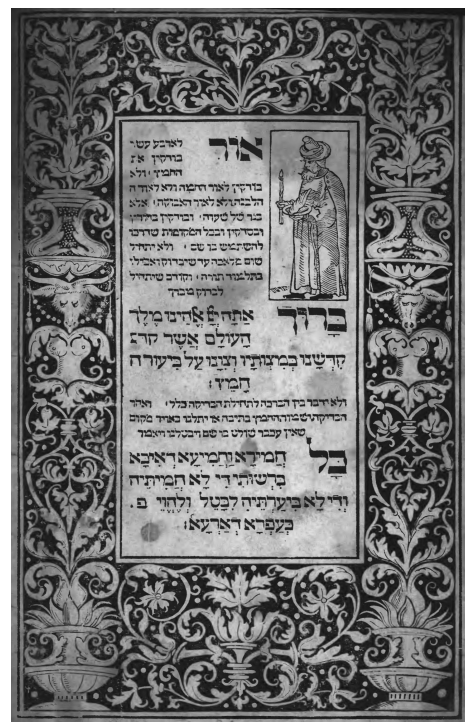 אור לארבע עשר
בודקין את
החמץ ולא
בודקין לאור החמה ולא לאור ה
הלבנה ולא לאור האבוקה אלא
בנר של שעוה ובודקין בחורין
ובסדקין ובכל המקומות שדרכו
להשתמש בו שם ולא יתחיל
שום מלאכה עד שיבדוק ואפילו
בתלמוד תורה וקודם שיתחיל
לבדוק מברך
בָּרוּךְ אַתָּה יְיָ אֱלֹהֵינוּ מֶלֶךְ
הָעוֹלָם אֲשֶׁר קד
קִדְּשָׁנוּ בְּמִצְוֹתָיו וְצִוָּנוּ עַל בִּיעוּר ה
חָמֵץ:
ולא ידבר בין הברכה לתחילת הבדיקה כלל ואחר
הבדיקה החמץ בתיבה או יתלנו באויר מקום
שאין עכבר שולט בו שם ויבטלנו ויאמר
כָּל חֲמִירָא וַחֲמִיעָא דְאִיכָּא
בִּרְשׁוּתִי דִי לָא חֲמִיתֵּיהּ
וְדִי לָא בִיעַרְתֵּיהּ לִבָּטֵל וְלֶהֱוֵי פ.
כְּעַפְרָא דְאַרְעָא: